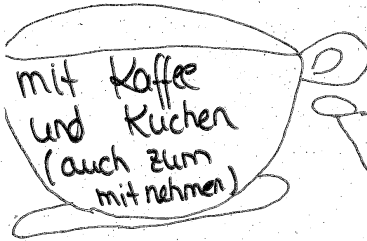 mit Kaffee
und Kuchen
(auch zum
mitnehmen)